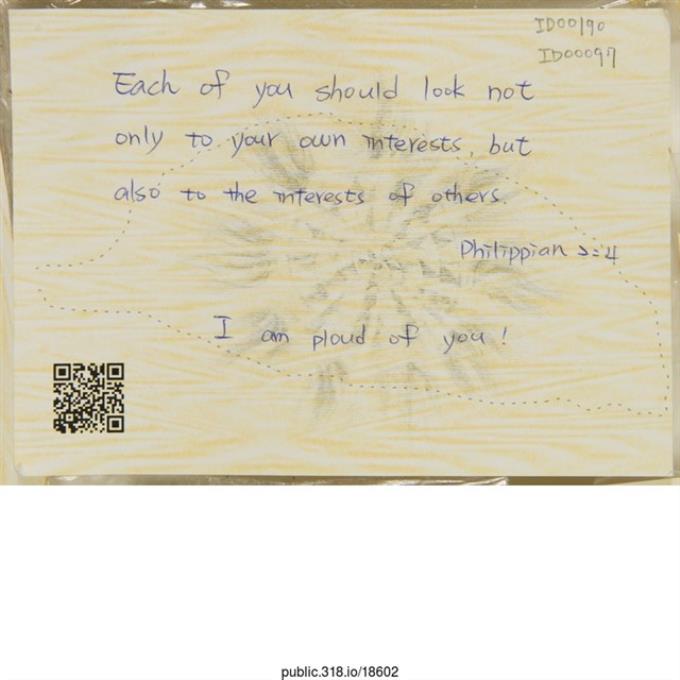 ID00190
ID00097
Each of you should look not
only to your own interests, but
also to the interests of others.
Philippian 2:4
I am ploud of you!
public.318.io/18602